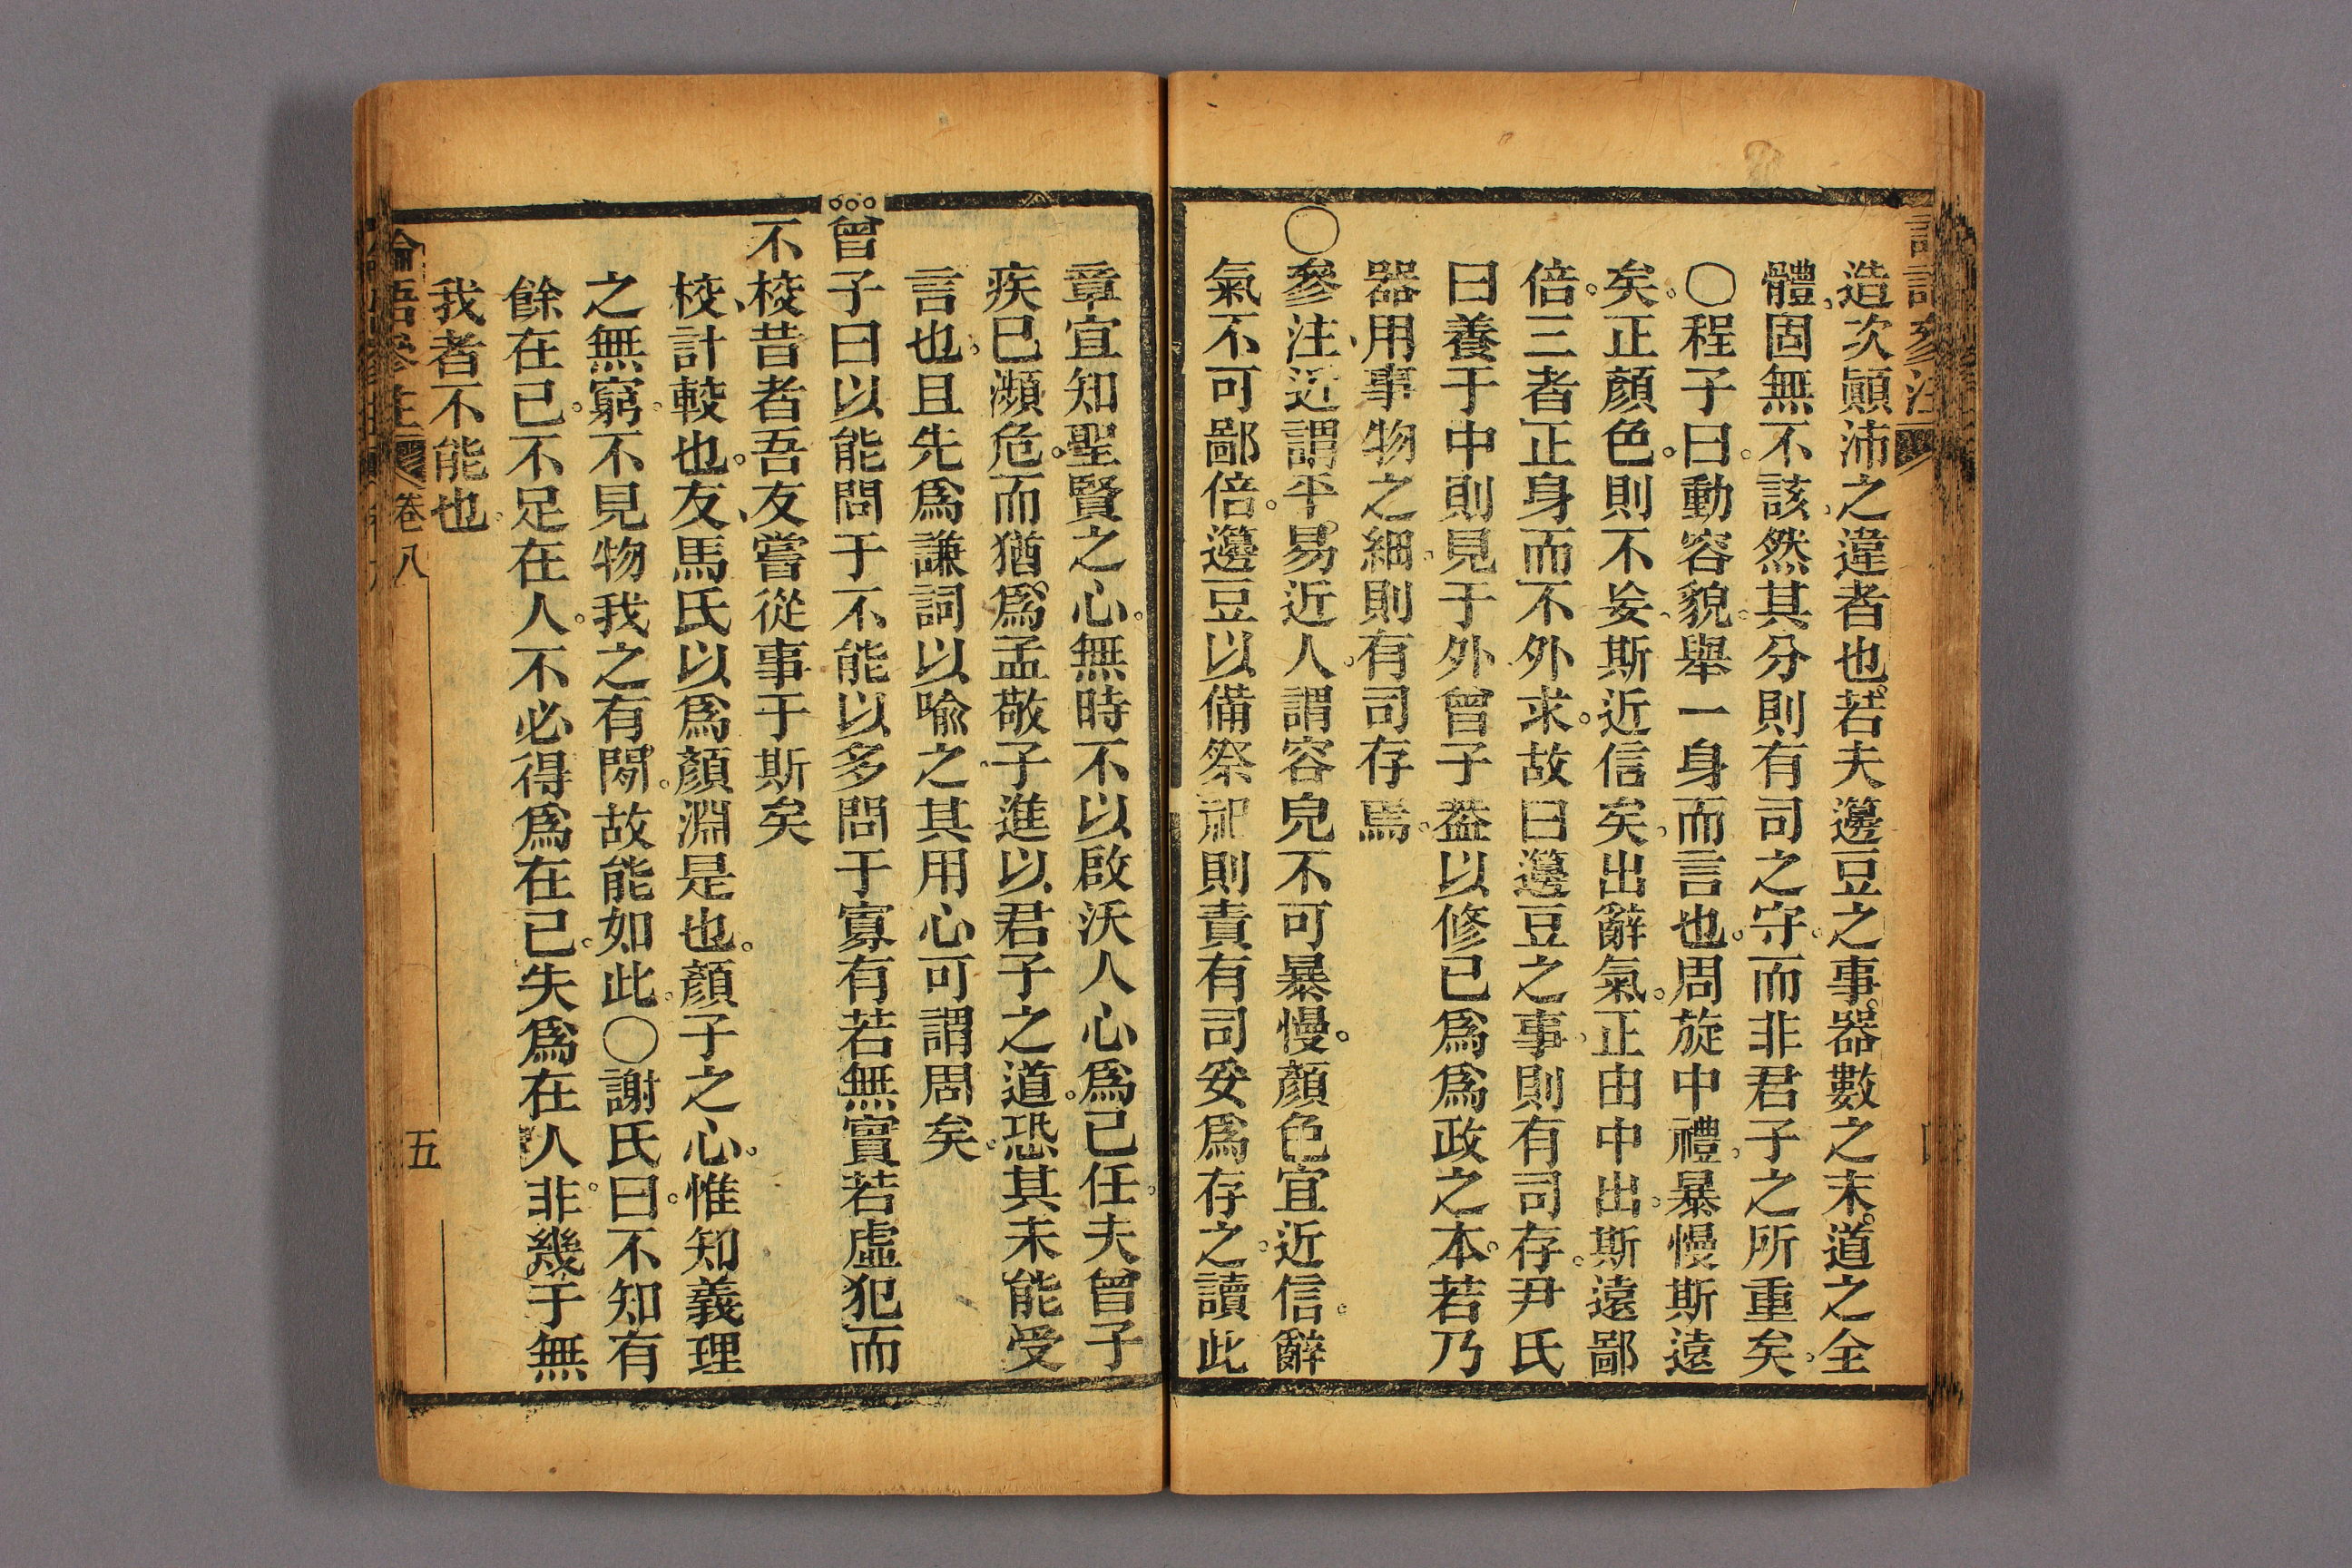 論語參注
造次顚沛之違者也若夫籩豆之事器數之末道之全
體固無不該然其分則有司之守而非君子之所重矣
○程子曰動容貌舉一身而言也周旋中禮暴慢斯遠
矣正顏色則不妄斯近信矣出辭氣正由中出斯遠鄙
倍三者正身而不外求故曰籩豆之事則有司存尹氏
曰養于中則見于外曾子葢以修已爲爲政之本若乃
器用事物之細則有司存焉
○參注近謂平易近人謂容皃不可暴慢顏色宜近信辭
氣不可鄙倍籩豆以備祭祀則責有司妥爲存之讀此
章宜知聖賢之心無時不以啟沃人心爲己任夫曾子
疾已瀕危而猶爲孟敬子進以君子之道恐其未能受
言也且先爲謙詞以喩之其用心可謂周矣
曾子曰以能問于不能以多問于寡有若無實若虛犯而
不校昔者吾友嘗從事于斯矣
校計較也友馬氏以爲顏淵是也顏子之心惟知義理
之無窮不見物我之有閒故能如此○謝氏曰不知有
餘在己不足在人不必得爲在己失爲在人非幾于無
我者不能也
論語參注 卷八 五